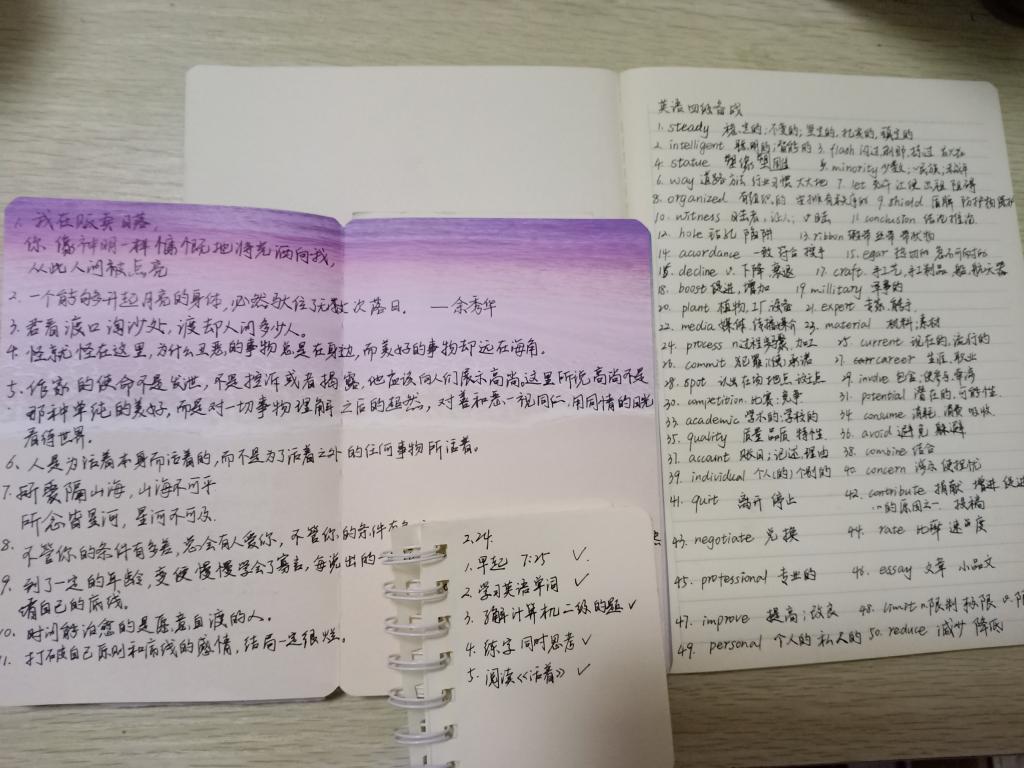 1. 我在贩卖日落
你像神明一样慷慨地将光洒向我,
从此人间被点亮
2. 一个能够升起月亮的身体,必然驮住了无数次落日. —余秀华
3. 君看渡口淘沙处,渡却人间多少人。
4. 怪就怪在这里,为什么丑恶的事物总是在身边,而美好的事物却远在海角。
5. 作家的使命不是发泄,不是控诉或者揭露,他应该向人们展示高尚。这里所说高尚不是
那种单纯的美好,而是对一切事物理解之后的超然,对善和恶一视同仁,用同情的目光
看待世界。
6. 人是为活着本身而活着的,而不是为了活着之外的任何事物所活着。
7. 所爱隔山海,山海不可平
所念皆星河,星河不可及
8. 不管你的条件有多差,总会有人爱你,不管你的条件有多
9. 到了一定的年龄,变便慢慢学会了寡言,每说出的一
请自己的底线。
10. 时间能治愈的是愿意自渡的人。
11. 打破自己原则和底线的感情,结局一定很烂。
2.24.
1. 早起 7:25 ✓
2. 学习英语单词 ✓
3. 了解计算机二级的题 ✓
4. 练字 同时思考 ✓
5. 阅读《活着》 ✓
英语四级备战
1. steady 稳定的;不变的;坚定的,扎实的,镇定的
2. intelligent 聪明的;智能的 3. flash 闪过
4. statue 塑像 5. minority 少数;民族;
6. way 道路 方法 行业 习惯 大大地 7. let 允许 让 使 出租 阻碍
8. organized 有组织的 安排有秩序的 9. shield 盾牌 防护物 保护
10. witness 目击者,证人; v 目击 11. conclusion 结论 推论
12. hole 钻孔 陷阱 13. ribbon 带状物
14. acordance 一致 符合 授予 15. egar 热切的
16. decline v. 下降 衰退 17. craft. 手工艺,手工制品 船,航天器
18. boost 促进,增加 19. millitary 军事的
20. plant 植物,工厂,设备 21. expert 专家,能手.
22. media 媒体,传播媒介 23. material 材料;素材
24. process n过程 步骤,加工 25. current 现在的,流行的
26. commit 犯罪(使)承诺 27. career 生涯,职业
28. spot 认出 在场 地点 污点 29. involve 包含;使参与,牵涉
30. competition 比赛;竞争 31. potential 潜在的,可能性.
33. academic 学术的;学校的 34. consume 消耗 消费 吸收
35. quality 质量 品质 特性 36. avoid 避免 躲避
37. account 账目;记述,理由 38. combine 结合
39. individual 个人(的) 个别的 40. concern 涉及 使担忧
41. quit 离开 停止 42. contribute 捐献 增进 促进
…的原因之一 投稿
43. negotiate 兑换 44. rate 比率 速度
45. professional 专业的 46. essay 文章 小品文
47. improve 提高;改良 48. limit n.限制 权限 v.限
49. personal 个人的 私人的 50. reduce 减少 降低